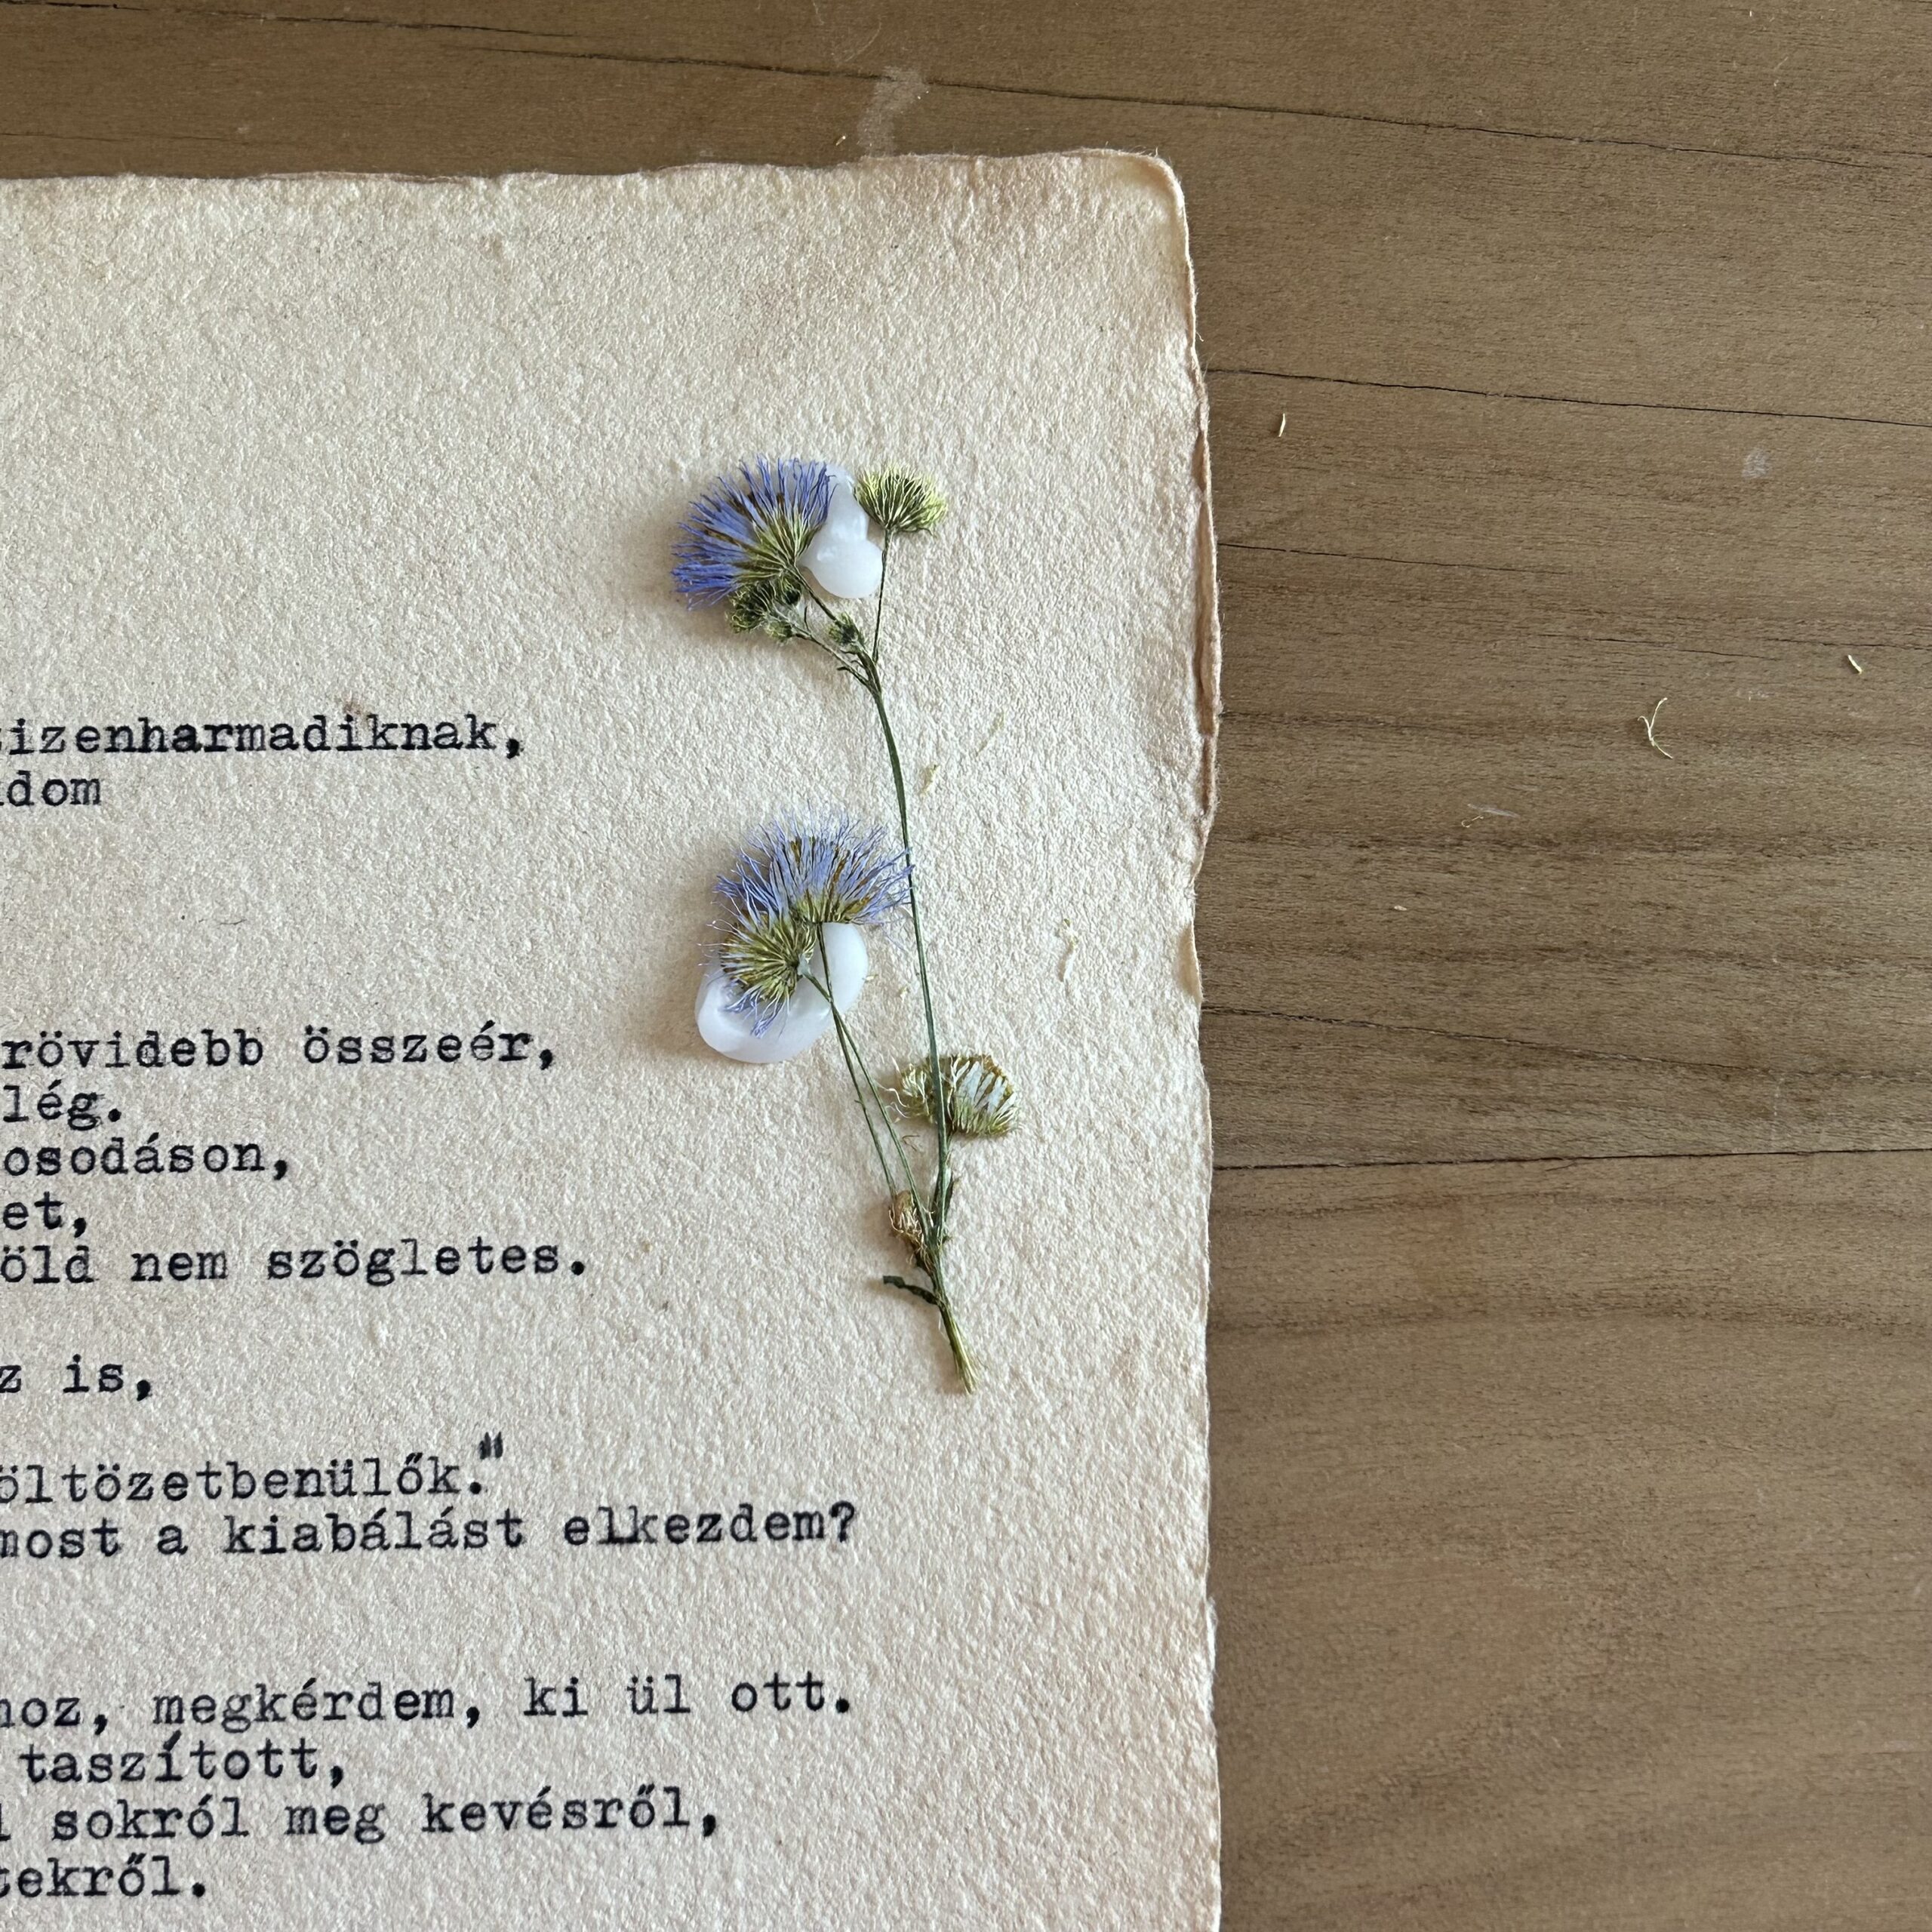 tizenharmadiknak,
dom
rövidebb összeér,
lég.
osodáson,
et,
öld nem szögletes.
z is,
öltözetbenülők."
most a kiabálást elkezdem?
hoz, megkérdem, ki ül ott.
taszított,
l sokról meg kevésről,
tekről.